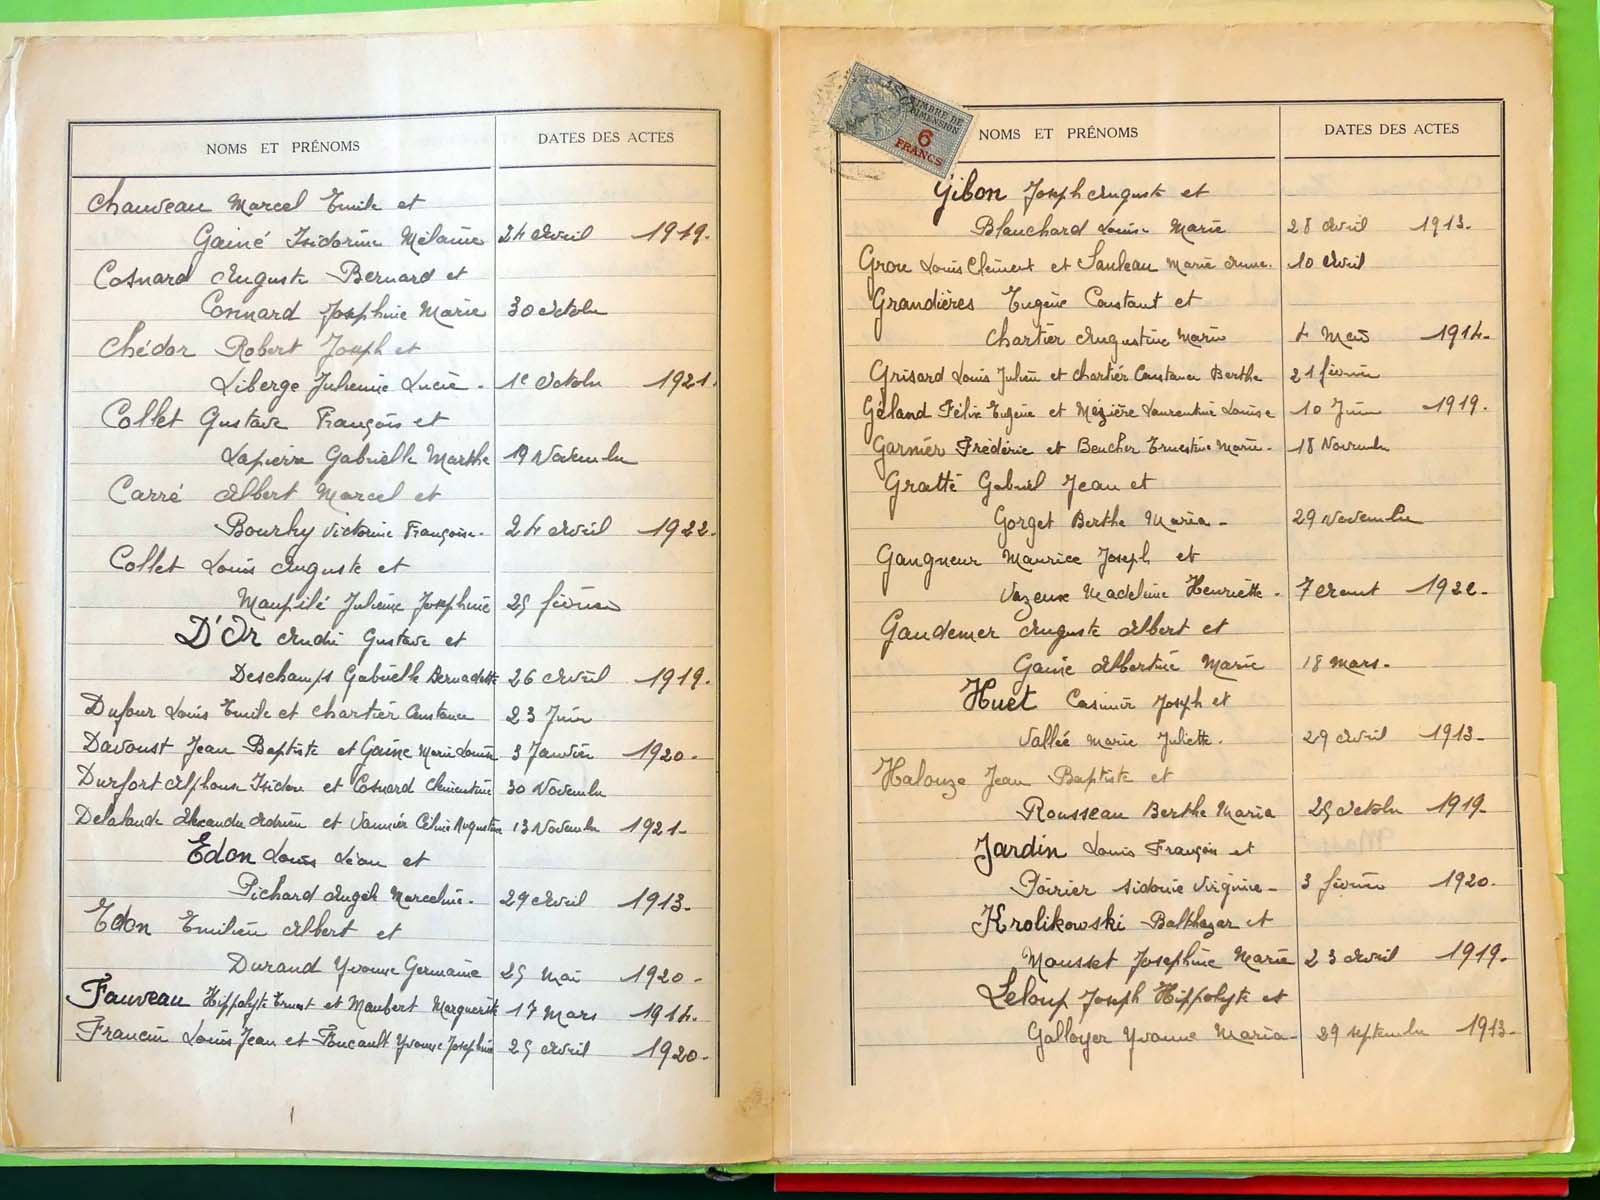 NOMS ET PRÉNOMS DATES DES ACTES
Chauveau Marcel Emile et
Gainé Isidorine Mélanie 24 Avril 1919.
Cosnard Auguste Bernard et
Connard Joséphine Marie 30 Octobre
Chédor Robert Joseph et
Liberge Julienne Lucie. 1e Octobre 1921.
Collet Gustave François et
Lapierre Gabrielle Marthe 19 Novembre
Carré Albert Marcel et
Bourhy Victorine Françoise. 24 Avril 1922.
Collet Louis Auguste et
Maupilé Julienne Joséphine 25 février
D'Or André Gustave et
Deschamps Gabrielle Bernadette 26 Avril 1919.
Dufour Louis Emile et Chartier Constance 23 Juin
Davoust Jean Baptiste et Gaine Marie Louise 3 Janvier 1920.
Durfort Alphonse Isidore et Cosnard Clémentine 30 Novembre
Delalande Alexandre Adrien et Vannier Céline Augustine 13 Novembre 1921.
Edon Louis Léon et
Pichard Angèle Marceline. 29 Avril 1913.
Edon Emilien Albert et
Durand Yvonne Germaine 25 Mai 1920.
Fauveau Hippolyte Ernest et Maubert Marguerite 17 Mars 1914.
Francin Louis Jean et Foucault Yvonne Joséphine 25 Avril 1920.
TIMBRE DE
DIMENSION
6
FRANCS
NOMS ET PRÉNOMS DATES DES ACTES
Gibon Joseph Auguste et
Blanchard Louise Marie 28 Avril 1913.
Grou Louis Clément et Sauleau Marie Anne. 10 Avril
Grandières Eugène Constant et
Chartier Augustine Marie 4 Mai 1914.
Grisard Louis Julien et Chartier Constance Berthe 21 février
Géland Félix Eugène et Mézière Laurentine Louise 10 Juin 1919.
Garnier Frédéric et Beucher Ernestine Marie. 18 Novembre
Gratté Gabriel Jean et
Gorget Berthe Maria. 29 Novembre
Gangneur Maurice Joseph et
Vazeux Madeleine Henriette. 7 Aout 1922.
Gaudemer Auguste Albert et
Gaine Albertine Marie 18 Mars.
Huet Casimir Joseph et
Vallée Marie Juliette. 29 Avril 1913.
Halouze Jean Baptiste et
Rousseau Berthe Maria 25 Octobre 1919.
Jardin Louis François et
Poirier Sidonie Virginie. 3 février 1920.
Krolikowski Balthazar et
Mousset Joséphine Marie 23 Avril 1919.
Leloup Joseph Hippolyte et
Galloyer Yvonne Maria. 29 septembre 1913.